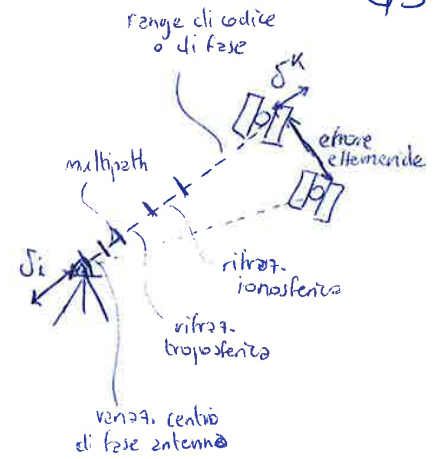 range di codice
o di fase
δᴷ
errore
effemeride
multipath
δi
rifraz.
ionosferica
rifraz.
troposferica
variaz. centro
di fase antenna